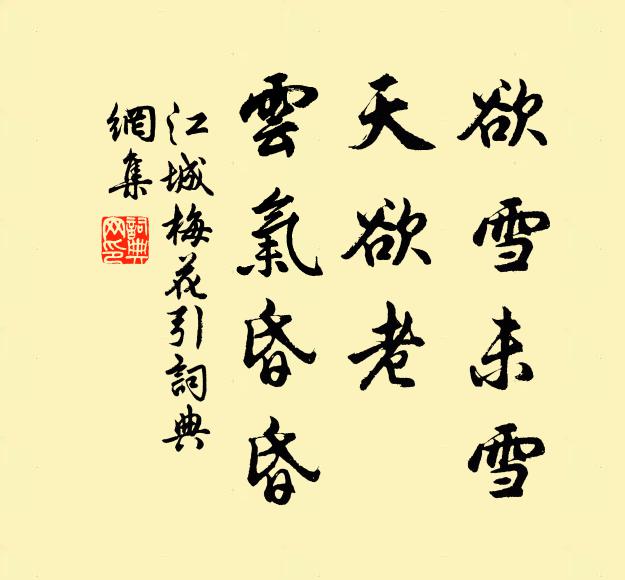 欲雪未雪
天欲老
雲氣昏昏
江城梅花引詞典
網集
詞典
网印